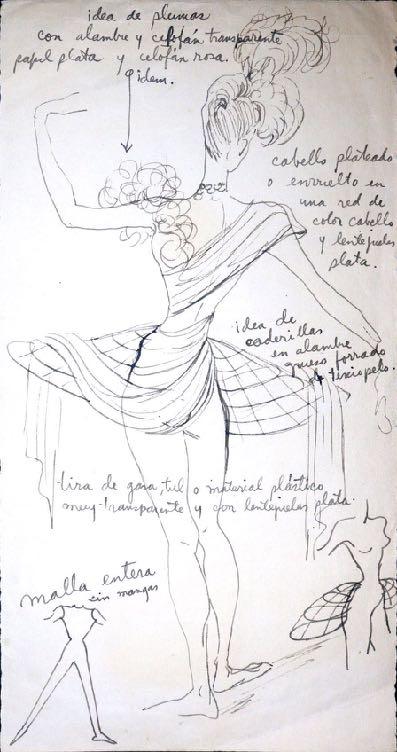 idea de plumas
con alambre y celofán transparente
papel plata y celofán rosa.
idem.
cabello plateado
o envuelto en
una red de
color cabello
y lentejuelas
plata.
idea de
caderillas
en alambre
grueso forrado
de terciopelo.
tira de gasa, tul o material plástico
muy transparente y con lentejuelas plata.
malla entera
sin mangas